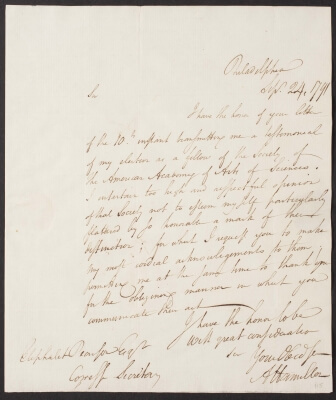 Philadelphia
Sep. 24, 1791
Sir
I have the honor of your letter
of the 10th instant transmitting me a testimonial
of my election as a fellow of the Society of
the American Academy of Arts & Sciences.
I entertain too high and respectful opinion
of that Society not to esteem myself particularly
flattered by so honorable a mark of their
distinction; for which I request you to make
my most cordial acknowlegements to them;
permitting me at the same time to thank you
for the obliging manner in which you
communicate their act
I have the honor to be
with great consideration
Sir Your Obed Sr
A Hamilton
Eliphalet Pearson Esqr
Corresp Secretary